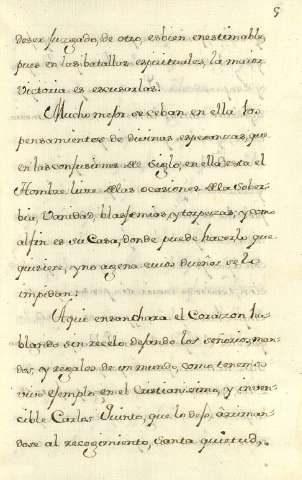 5
deser juzgado, de otro, es bien enestimable,
pues en las batallas espirituales, la maior
victoria es escusarlas.
Mucho mejor se ceban en ella los
pensamientos de divinas esperanzas, que
en las confusiones del Siglo, en ella esta el
Hombre libre de las ocasiones de la Sober
bia, Vanidad, blasfemias, y torpezas, y como
al fin es su Casa, donde puede hacer lo que
quisiere, y no agena cuios dueños se lo
impidan.
Aqui ensanchara el Corazon ha
blando sin recelo dejando los señorios, man
dos, y regalos de un mundo, como tenemos
vivo ejemplo, en el Cristianisimo, y inven
cible Carlos Quinto, que lo dejo, arriman
dose al recogimiento, santa quietud,